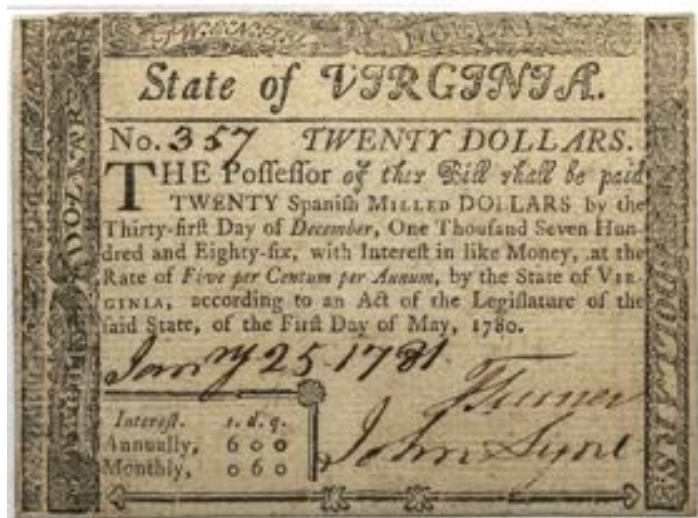 TWENTY DOLLARS
State of VIRGINIA.
No. 357 TWENTY DOLLARS.
THE Poſſeſſor of this Bill shall be paid
TWENTY Spaniſh MILLED DOLLARS by the
Thirty-firſt Day of December, One Thouſand Seven Hun-
dred and Eighty-ſix, with Intereſt in like Money, at the
Rate of Five per Centum per Annum, by the State of VIR-
GINIA, according to an Act of the Legiſlature of the
ſaid State, of the Firſt Day of May, 1780.
Janry 25 1781
Intereſt. s. d. q.
Annually, 6 0 0
Monthly, 0 6 0
Turner
John
DOLLAR
DOLLARS